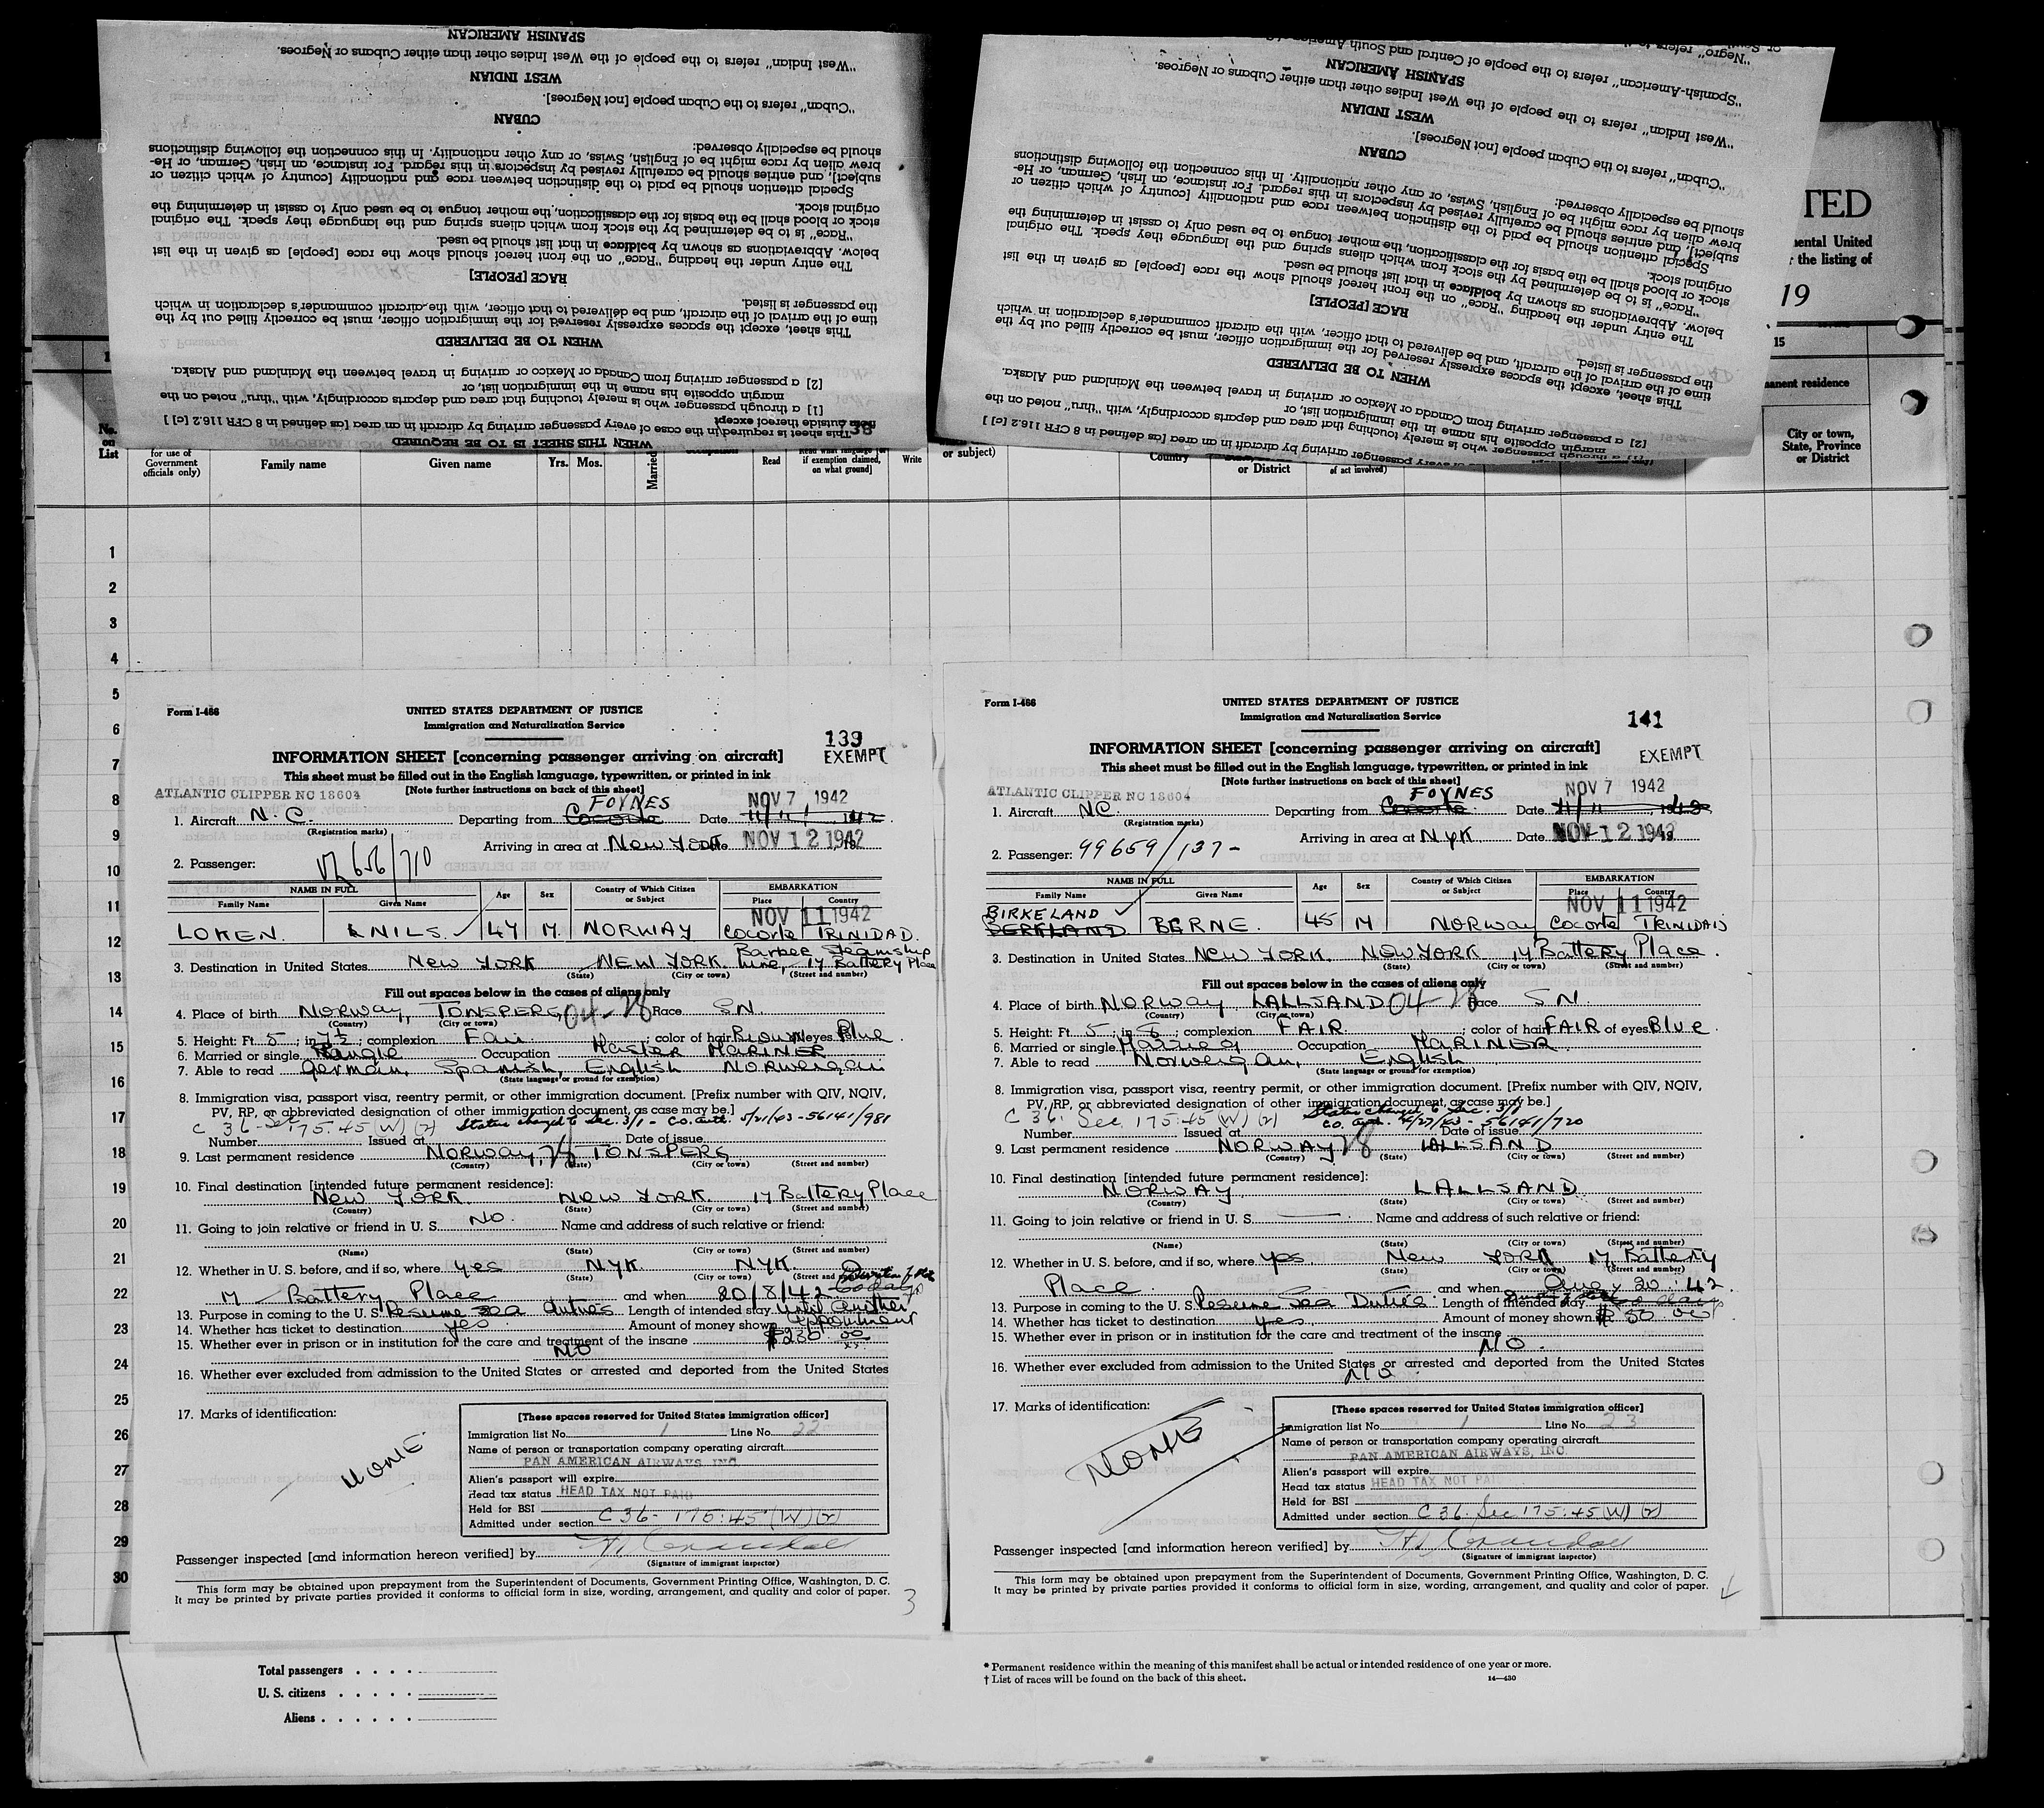 SPANISH AMERICAN
"West Indian" refers to the people of the West Indies other than either Cubans or Negroes.
WEST INDIAN
"Cuban" refers to the Cuban people [not Negroes].
CUBAN
should be especially observed:
brew alien by race might be of English, Swiss, or any other nationality. In this connection the following distinctions
subject], and entries should be carefully revised by inspectors in this regard. For instance, an Irish, German, or He-
Special attention should be paid to the distinction between race and nationality [country of which citizen or
original stock.
stock or blood shall be the basis for the classification, the mother tongue to be used only to assist in determining the
"Race" is to be determined by the stock from which aliens spring and the language they speak. The original
below. Abbreviations as shown by boldface in that list should be used.
The entry under the heading "Race" on the front hereof should show the race [people] as given in the list
RACE [PEOPLE]
the passenger is listed.
time of the arrival of the aircraft, and be delivered to that officer, with the aircraft commander's declaration in which
This sheet, except the spaces expressly reserved for the immigration officer, must be correctly filled out by the
WHEN TO BE DELIVERED
[2] a passenger arriving from Canada or Mexico or arriving in travel between the Mainland and Alaska.
margin opposite his name in the immigration list, or
[1] a through passenger who is merely touching that area and departs accordingly, with "thru" noted on the
outside thereof except
This sheet is required in the case of every passenger arriving by aircraft in an area [as defined in 8 CFR 116.2 [c] ]
WHEN THIS SHEET IS TO BE REQUIRED
"Negro" refers to the
"Spanish-American" refers to the people of Central and South America
SPANISH AMERICAN
"West Indian" refers to the people of the West Indies other than either Cubans or Negroes.
WEST INDIAN
"Cuban" refers to the Cuban people [not Negroes].
CUBAN
should be especially observed:
brew alien by race might be of English, Swiss, or any other nationality. In this connection the following distinctions
subject], and entries should be carefully revised by inspectors in this regard. For instance, an Irish, German, or He-
Special attention should be paid to the distinction between race and nationality [country of which citizen or
original stock.
stock or blood shall be the basis for the classification, the mother tongue to be used only to assist in determining the
"Race" is to be determined by the stock from which aliens spring and the language they speak. The original
below. Abbreviations as shown by boldface in that list should be used.
The entry under the heading "Race" on the front hereof should show the race [people] as given in the list
RACE [PEOPLE]
the passenger is listed.
time of the arrival of the aircraft, and be delivered to that officer, with the aircraft commander's declaration in which
This sheet, except the spaces expressly reserved for the immigration officer, must be correctly filled out by the
WHEN TO BE DELIVERED
[2] a passenger arriving from Canada or Mexico or arriving in travel between the Mainland and Alaska.
margin opposite his name in the immigration list, or
[1] a through passenger who is merely touching that area and departs accordingly, with "thru" noted on the
every passenger arriving by aircraft in an area [as defined in 8 CFR 116.2 [c] ]
TED
mental United
the listing of
19
15
manent residence
City or town,
State, Province
or District
No.
on
List
for use of
Government
officials only)
Family name
Given name
Yrs. Mos.
Married
Read
Read what language [or
if exemption claimed,
on what ground]
Write
or subject)
Country
or District
of act involved)
1
2
3
4
5
6
7
8
9
10
11
12
13
14
15
16
17
18
19
20
21
22
23
24
25
26
27
28
29
30
Form I-466
UNITED STATES DEPARTMENT OF JUSTICE
Immigration and Naturalization Service
139
EXEMPT
INFORMATION SHEET [concerning passenger arriving on aircraft]
This sheet must be filled out in the English language, typewritten, or printed in ink
[Note further instructions on back of this sheet]
ATLANTIC CLIPPER NC 18604
FOYNES
NOV 7 1942
1. Aircraft N.C. Departing from Cocorte Date 11/11/ 1942
(Registration marks)
Arriving in area at New York Date NOV 12 1942
2. Passenger: 710
NAME IN FULL Age Sex Country of Which Citizen or Subject EMBARKATION
Family Name Given Name Place Country
NOV 11 1942
LOKEN. NILS. 47 M. NORWAY Cocorte TRINIDAD.
Barber Steamship
3. Destination in United States New York NEW YORK. Line, 17 Battery Place
(State) (City or town) (Street and number)
Fill out spaces below in the cases of aliens only
4. Place of birth Norway, TONSPERG 04-28 Race SN.
(Country) (City or town)
5. Height: Ft. 5; in. 7½; complexion Fair; color of hair Brown of eyes Blue.
6. Married or single Single Occupation Master Mariner
7. Able to read German, Spanish, English Norweigan
(State language or ground for exemption)
8. Immigration visa, passport visa, reentry permit, or other immigration document. [Prefix number with QIV, NQIV,
PV, RP, or abbreviated designation of other immigration document, as case may be.]
C 36-Sec 175.45 (W) (2) Status changed to Sec. 3/1 - C.O. auth. 5/21/43 - 56141/981
Number Issued at Date of issue
9. Last permanent residence Norway, 28 TONSPERG
(Country) (State) (City or town) (Street and number)
10. Final destination [intended future permanent residence]:
New York New York. 17 Battery Place
(Country) (State) (City or town) (Street and number)
11. Going to join relative or friend in U. S. No. Name and address of such relative or friend:
(Name) (State) (City or town) (Street and number)
12. Whether in U.S. before, and if so, where yes NYK. NYK.
(State) (City or town) (Street and number)
17 Battery Place and when 20/8/42
13. Purpose in coming to the U. S. Resume sea duties Length of intended stay until another
appointment
14. Whether has ticket to destination yes Amount of money shown $230 00
15. Whether ever in prison or in institution for the care and treatment of the insane
NO
16. Whether ever excluded from admission to the United States or arrested and deported from the United States
17. Marks of identification:
NONE
[These spaces reserved for United States immigration officer]
Immigration list No. 1 Line No. 22
Name of person or transportation company operating aircraft
PAN AMERICAN AIRWAYS, INC.
Alien's passport will expire
Head tax status HEAD TAX NOT PAID
Held for BSI
Admitted under section C 36-175.45 (W) (2)
Passenger inspected [and information hereon verified] by
(Signature of immigrant inspector)
This form may be obtained upon prepayment from the Superintendent of Documents, Government Printing Office, Washington, D. C.
It may be printed by private parties provided it conforms to official form in size, wording, arrangement, and quality and color of paper.
3
Form I-466
UNITED STATES DEPARTMENT OF JUSTICE
Immigration and Naturalization Service
141
EXEMPT
INFORMATION SHEET [concerning passenger arriving on aircraft]
This sheet must be filled out in the English language, typewritten, or printed in ink
[Note further instructions on back of this sheet]
ATLANTIC CLIPPER NC 18604
FOYNES
NOV 7 1942
1. Aircraft NC. Departing from Cocorte Date 11/11 1942
(Registration marks)
Arriving in area at NYK. Date NOV 12 1942
2. Passenger: 99659/137-
NAME IN FULL Age Sex Country of Which Citizen or Subject EMBARKATION
Family Name Given Name Place Country
NOV 11 1942
BIRKELAND
BERKLAND BERNE. 45 M Norway Cocorte TRINIDAD
3. Destination in United States New York. New York 17 Battery Place.
(State) (City or town) (Street and number)
Fill out spaces below in the cases of aliens only
4. Place of birth Norway LALLSAND 04-28 Race SN.
(Country) (City or town)
5. Height: Ft. 5; in. 8; complexion FAIR.; color of hair FAIR of eyes Blue.
6. Married or single Married Occupation MARINER.
7. Able to read Norweigan, English
(State language or ground for exemption)
8. Immigration visa, passport visa, reentry permit, or other immigration document. [Prefix number with QIV, NQIV,
PV, RP, or abbreviated designation of other immigration document, as case may be.]
C 36. Sec. 175.45 (W) (2) Status changed to Sec. 3/1
C.O. auth. 4/27/43 - 56141/720
Number Issued at Date of issue
9. Last permanent residence NORWAY 28 LALLSAND
(Country) (State) (City or town) (Street and number)
10. Final destination [intended future permanent residence]:
NORWAY LALLSAND.
(Country) (State) (City or town) (Street and number)
11. Going to join relative or friend in U. S. Name and address of such relative or friend:
(Name) (State) (City or town) (Street and number)
12. Whether in U.S. before, and if so, where yes. New York 17 Battery
(State) (City or town) (Street and number)
Place. and when Aug. 20. 42.
13. Purpose in coming to the U. S. Resume Sea Duties Length of intended stay 60 days
14. Whether has ticket to destination yes. Amount of money shown $ 50 00
15. Whether ever in prison or in institution for the care and treatment of the insane
NO.
16. Whether ever excluded from admission to the United States or arrested and deported from the United States
NO.
17. Marks of identification:
NONE
[These spaces reserved for United States immigration officer]
Immigration list No. 1 Line No. 23
Name of person or transportation company operating aircraft
PAN AMERICAN AIRWAYS, INC.
Alien's passport will expire
Head tax status HEAD TAX NOT PAID
Held for BSI
Admitted under section C 36. Sec 175.45 (W) (2)
Passenger inspected [and information hereon verified] by
(Signature of immigrant inspector)
This form may be obtained upon prepayment from the Superintendent of Documents, Government Printing Office, Washington, D. C.
It may be printed by private parties provided it conforms to official form in size, wording, arrangement, and quality and color of paper.
Total passengers . . . .
U. S. citizens . . . . .
Aliens . . . . . .
* Permanent residence within the meaning of this manifest shall be actual or intended residence of one year or more.
† List of races will be found on the back of this sheet.
14—430